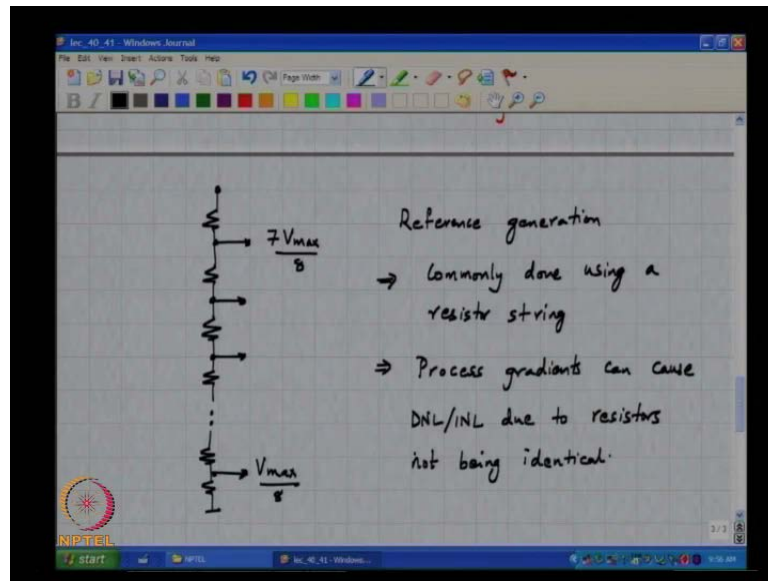 lec_40_41 - Windows Journal
File Edit View Insert Actions Tools Help
Page Width
B I
7 Vmax
8
Vmax
8
Reference generation
→ Commonly done using a
resistr string
⇒ Process gradients can cause
DNL/INL due to resistors
not being identical.
3/3
NPTEL
start
NPTEL
lec_40_41 - Windows...
9:56 AM